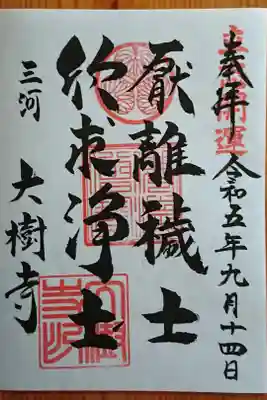 奉拝
令和五年九月十四日
厭離穢土
欣求浄土
三河
大樹寺